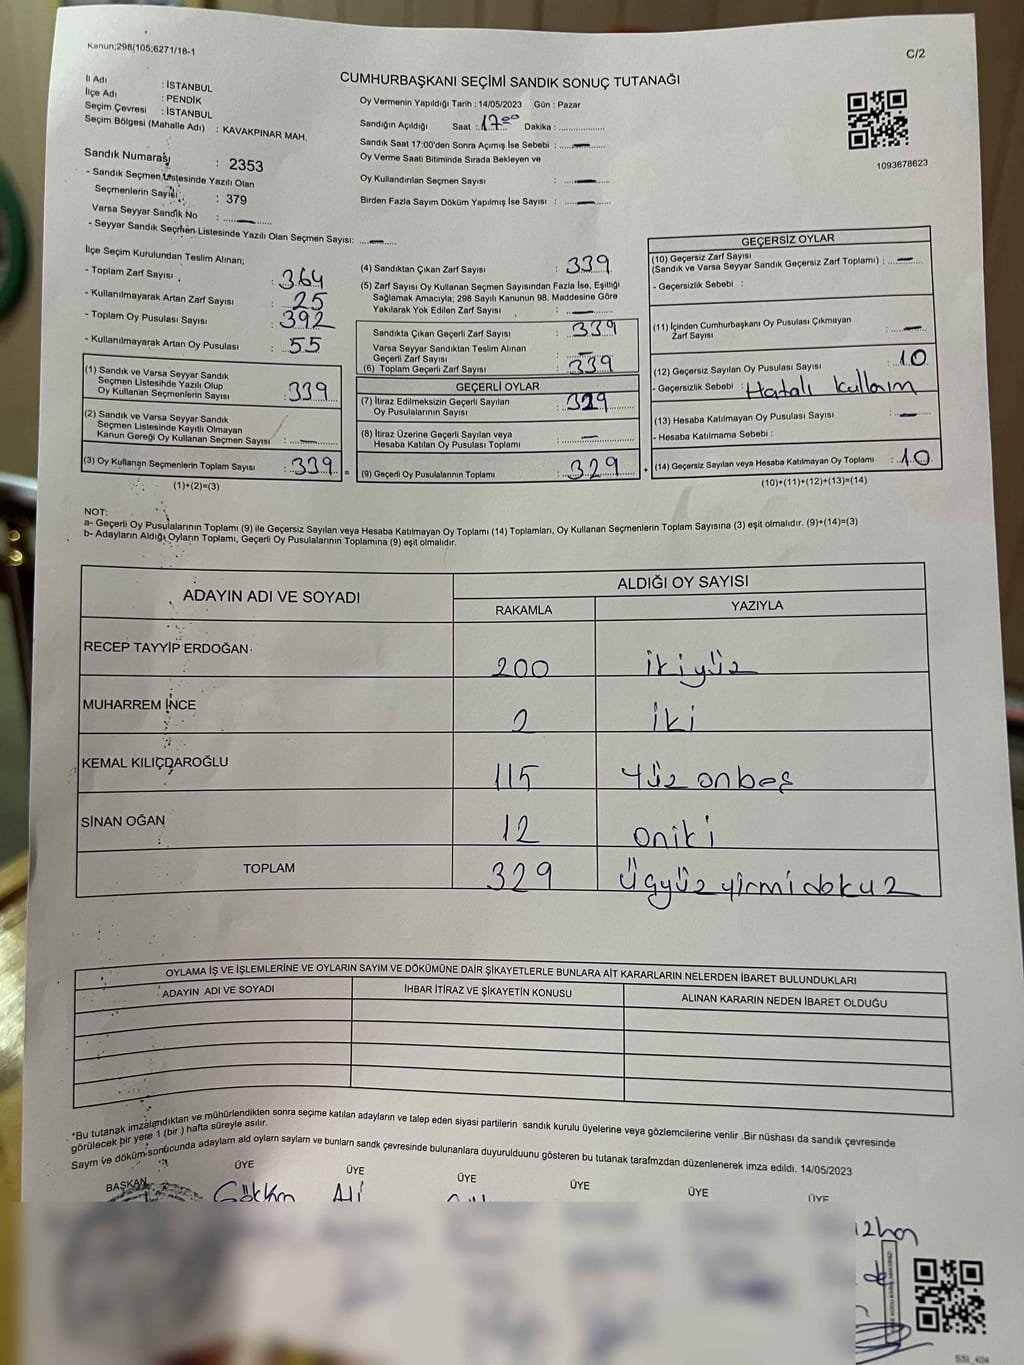 Kanun;298/105;6271/18-1
C/2
CUMHURBAŞKANI SEÇİMİ SANDIK SONUÇ TUTANAĞI
İl Adı : İSTANBUL
İlçe Adı : PENDİK
Seçim Çevresi : İSTANBUL
Seçim Bölgesi (Mahalle Adı) : KAVAKPINAR MAH.
Sandık Numarası : 2353
- Sandık Seçmen Listesinde Yazılı Olan
Seçmenlerin Sayısı : 379
Varsa Seyyar Sandık No : —
- Seyyar Sandık Seçmen Listesinde Yazılı Olan Seçmen Sayısı: —
Oy Vermenin Yapıldığı Tarih : 14/05/2023 Gün : Pazar
Sandığın Açıldığı Saat : 17.00 Dakika :
Sandık Saat 17:00'den Sonra Açımış İse Sebebi : —
Oy Verme Saati Bitiminde Sırada Bekleyen ve
Oy Kullandırılan Seçmen Sayısı : —
Birden Fazla Sayım Döküm Yapılmış İse Sayısı : —
1093678623
İlçe Seçim Kurulundan Teslim Alınan;
- Toplam Zarf Sayısı : 364
- Kullanılmayarak Artan Zarf Sayısı : 25
- Toplam Oy Pusulası Sayısı : 392
- Kullanılmayarak Artan Oy Pusulası : 55
(1) Sandık ve Varsa Seyyar Sandık
Seçmen Listesihde Yazılı Olup
Oy Kullanan Seçmenlerin Sayısı : 339
(2) Sandık ve Varsa Seyyar Sandık
Seçmen Listesinde Kayıtlı Olmayan
Kanun Gereği Oy Kullanan Seçmen Sayısı : —
(3) Oy Kullanan Seçmenlerin Toplam Sayısı : 339 =
(1)+(2)=(3)
(4) Sandıktan Çıkan Zarf Sayısı : 339
(5) Zarf Sayısı Oy Kullanan Seçmen Sayısından Fazla İse, Eşitliği
Sağlamak Amacıyla; 298 Sayılı Kanunun 98. Maddesine Göre
Yakılarak Yok Edilen Zarf Sayısı : —
Sandıkta Çıkan Geçerli Zarf Sayısı : 339
Varsa Seyyar Sandıktan Teslim Alınan
Geçerli Zarf Sayısı : —
(6) Toplam Geçerli Zarf Sayısı : 339
GEÇERLİ OYLAR
(7) İtiraz Edilmeksizin Geçerli Sayılan
Oy Pusulalarının Sayısı : 329
(8) İtiraz Üzerine Geçerli Sayılan veya
Hesaba Katılan Oy Pusulası Toplamı : —
(9) Geçerli Oy Pusulalarının Toplamı : 329 +
GEÇERSİZ OYLAR
(10) Geçersiz Zarf Sayısı
(Sandık ve Varsa Seyyar Sandık Geçersiz Zarf Toplamı) : —
- Geçersizlik Sebebi :
(11) İçinden Cumhurbaşkanı Oy Pusulası Çıkmayan
Zarf Sayısı : —
(12) Geçersiz Sayılan Oy Pusulası Sayısı : 10
- Geçersizlik Sebebi : Hatalı Kullanım
(13) Hesaba Katılmayan Oy Pusulası Sayısı : —
- Hesaba Katılmama Sebebi :
(14) Geçersiz Sayılan veya Hesaba Katılmayan Oy Toplamı : 10
(10)+(11)+(12)+(13)=(14)
NOT:
a- Geçerli Oy Pusulalarının Toplamı (9) ile Geçersiz Sayılan veya Hesaba Katılmayan Oy Toplamı (14) Toplamları, Oy Kullanan Seçmenlerin Toplam Sayısına (3) eşit olmalıdır. (9)+(14)=(3)
b- Adayların Aldığı Oyların Toplamı, Geçerli Oy Pusulalarının Toplamına (9) eşit olmalıdır.
ADAYIN ADI VE SOYADI ALDIĞI OY SAYISI
RAKAMLA YAZIYLA
RECEP TAYYİP ERDOĞAN 200 ikiyüz
MUHARREM İNCE 2 iki
KEMAL KILIÇDAROĞLU 115 Yüz onbeş
SİNAN OĞAN 12 oniki
TOPLAM 329 Üçyüz yirmi dokuz
OYLAMA İŞ VE İŞLEMLERİNE VE OYLARIN SAYIM VE DÖKÜMÜNE DAİR ŞİKAYETLERLE BUNLARA AİT KARARLARIN NELERDEN İBARET BULUNDUKLARI
ADAYIN ADI VE SOYADI İHBAR İTİRAZ VE ŞİKAYETİN KONUSU ALINAN KARARIN NEDEN İBARET OLDUĞU
*Bu tutanak imzalandıktan ve mühürlendikten sonra seçime katılan adayların ve talep eden siyasi partilerin sandık kurulu üyelerine veya gözlemcilerine verilir .Bir nüshası da sandık çevresinde
görülecek bir yere 1 (bir ) hafta süreyle asılır.
Sayım ve döküm sonucunda adayların ald oyların sayları ve bunların sandk çevresinde bulunanlara duyurulduunu gösteren bu tutanak tarafmzdan düzenlenerek imza edildi. 14/05/2023
BAŞKAN ÜYE ÜYE ÜYE ÜYE ÜYE ÜYE
Gökhan Ali